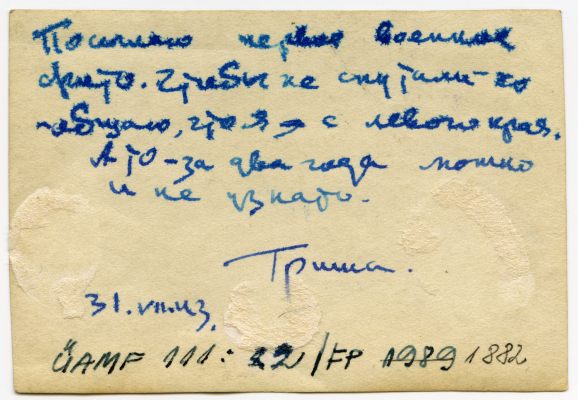 Посылаю первое военное
фото. Чтобы не спутали-со
общаю, что я – с левого края.
А то – за два года можно
и не узнать.
Гриша.
31.VII.43.
ÜAMF 111: 22/FP 1989 1882